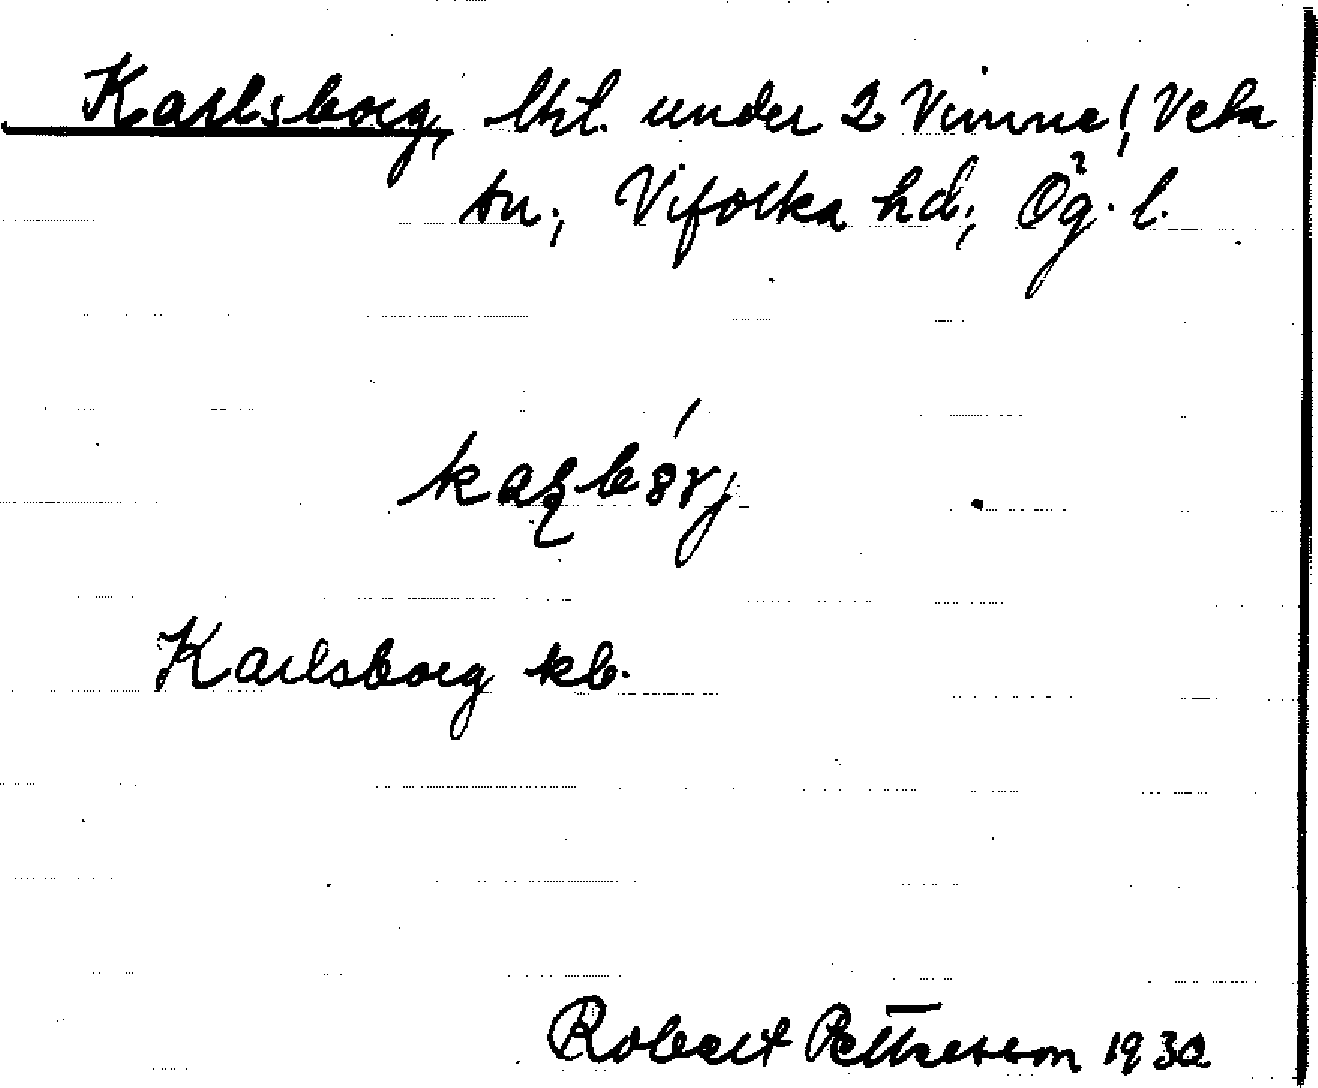 Karlsborg, lht. under 2 Vimne, Veta
sn., Vifolka hd., Ög. l.
Karlsborg kb.
Robert Pettersson 1932